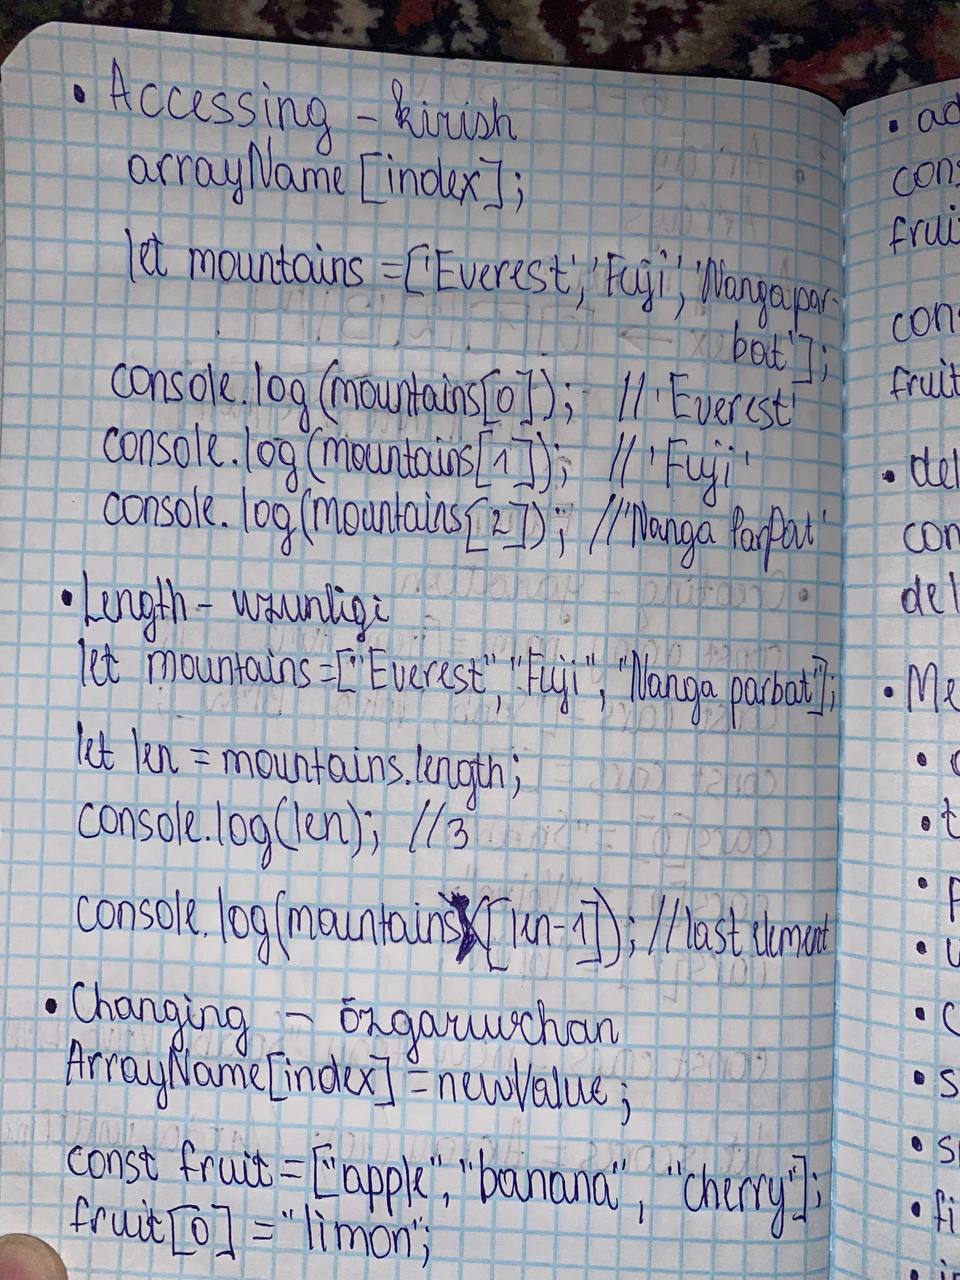 • Accessing - kirish
arrayName [index];
let mountains = ['Everest', 'Fuji', 'Nanga par-
bat'];
console.log(mountains[0]); // 'Everest'
console.log(mountains[1]); // 'Fuji'
console.log(mountains[2]); // 'Nanga ParPat'
• Length - uzunligi
let mountains = ["Everest", "Fuji", "Nanga parbat"];
let len = mountains.length;
console.log(len); //3
console.log(mountains[len-1]); //last element
• Changing - õzgaruvchan
ArrayName[index] = newValue;
const fruit = ["apple", "banana", "cherry"];
fruit[0] = "limon";
• ad
cons
frui
con
fruit
• del
con
del
• Me